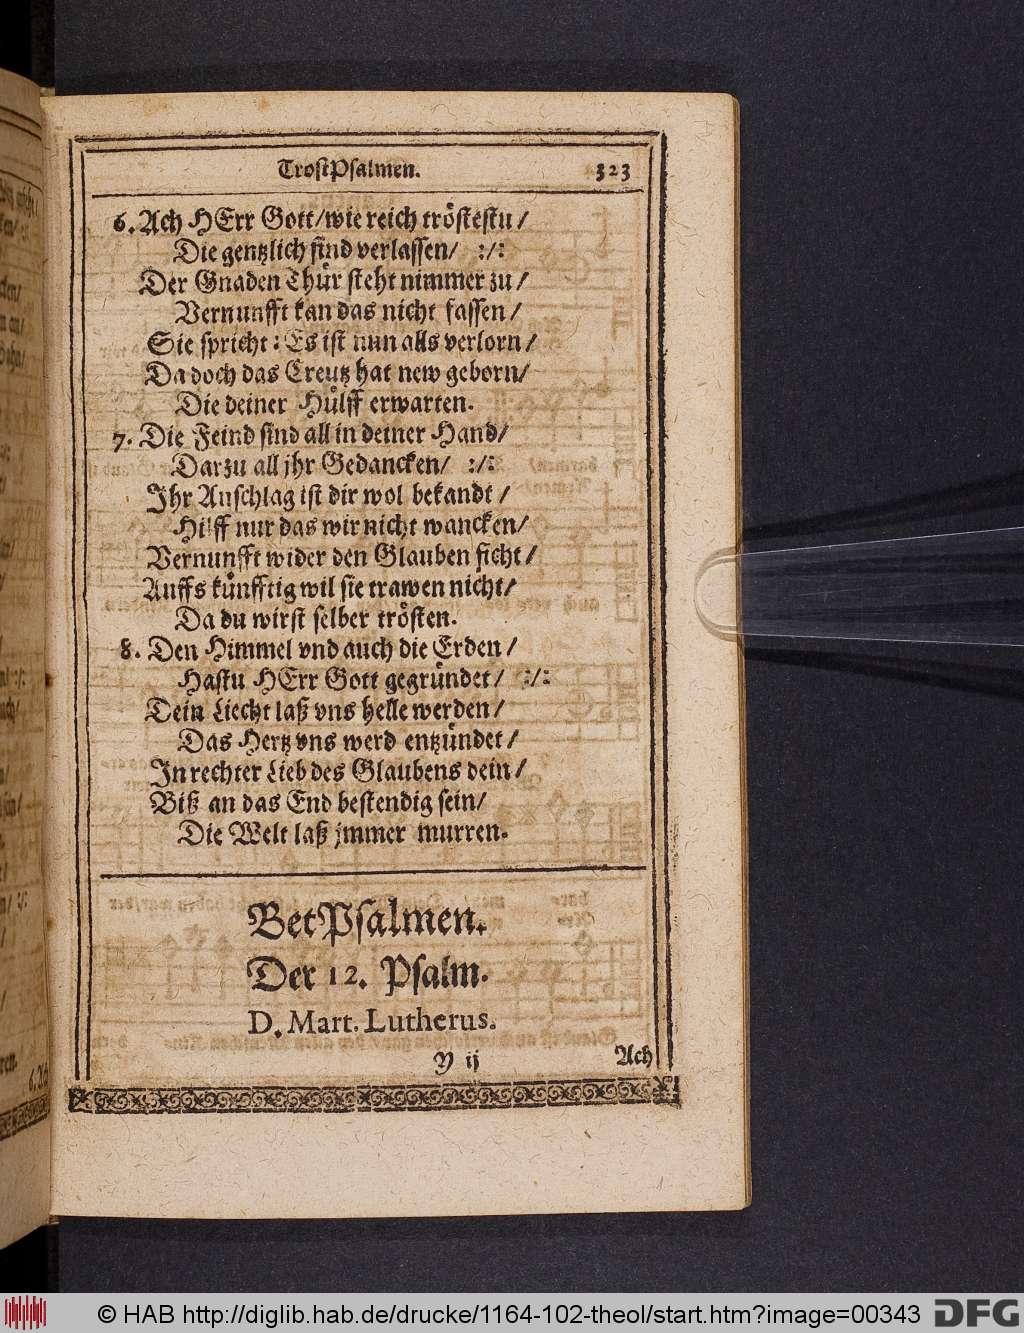 TrostPsalmen. 323
6. Ach HErr Gott/wie reich tröstestu/
Die gentzlich sind verlassen/ :/:
Der Gnaden Thür steht nimmer zu/
Vernunfft kan das nicht fassen/
Sie spricht: Es ist nun alls verlorn/
Da doch das Creutz hat new geborn/
Die deiner Hülff erwarten.
7. Die Feind sind all in deiner Hand/
Darzu all jhr Gedancken/ :/:
Ihr Anschlag ist dir wol bekandt/
Hilff nur das wir nicht wancken/
Vernunfft wider den Glauben ficht/
Auffs künfftig wil sie trawen nicht/
Da du wirst selber trösten.
8. Den Himmel vnd auch die Erden/
Hastu HErr Gott gegründet/ :/:
Dein Liecht laß vns helle werden/
Das Hertz vns werd entzündet/
In rechter Lieb des Glaubens dein/
Biß an das End bestendig sein/
Die Welt laß jmmer murren.
BetPsalmen.
Der 12. Psalm.
D. Mart. Lutherus.
Y ij Ach
© HAB http://diglib.hab.de/drucke/1164-102-theol/start.htm?image=00343 DFG